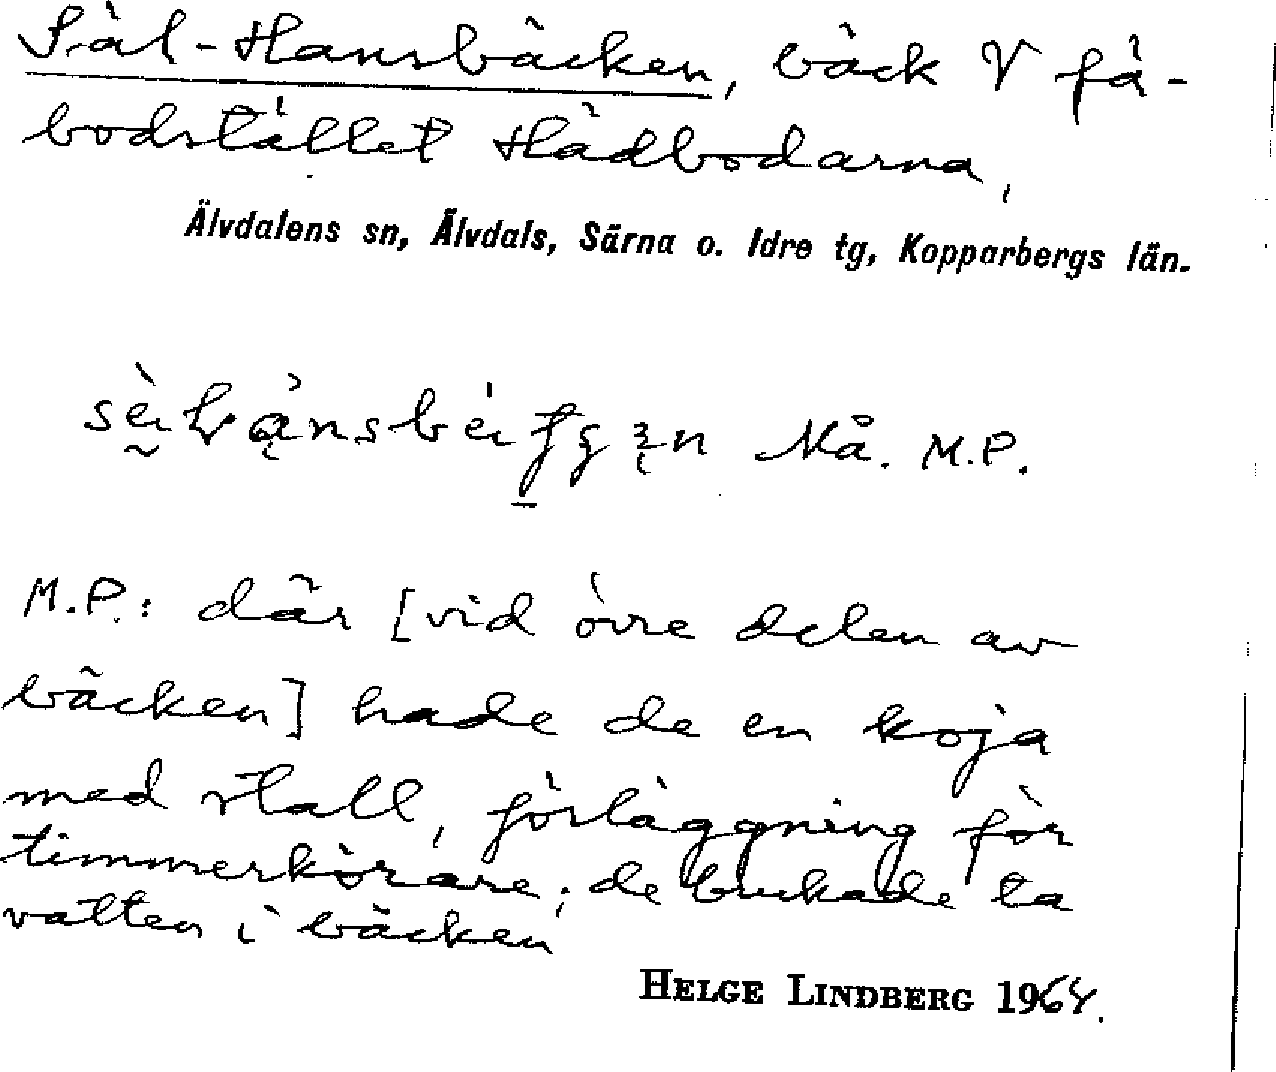 Säl-Hansbäcken, bäck V få-
bodstället Hådbodarna,
Älvdalens sn, Älvdals, Särna o. Idre tg, Kopparbergs län.
Må. M.P.
M.P.: där [vid övre delen av
bäcken] hade de en koja
med stall, förläggning för
timmerkörare; de brukade ta
vatten i bäcken
HELGE LINDBERG 1964.